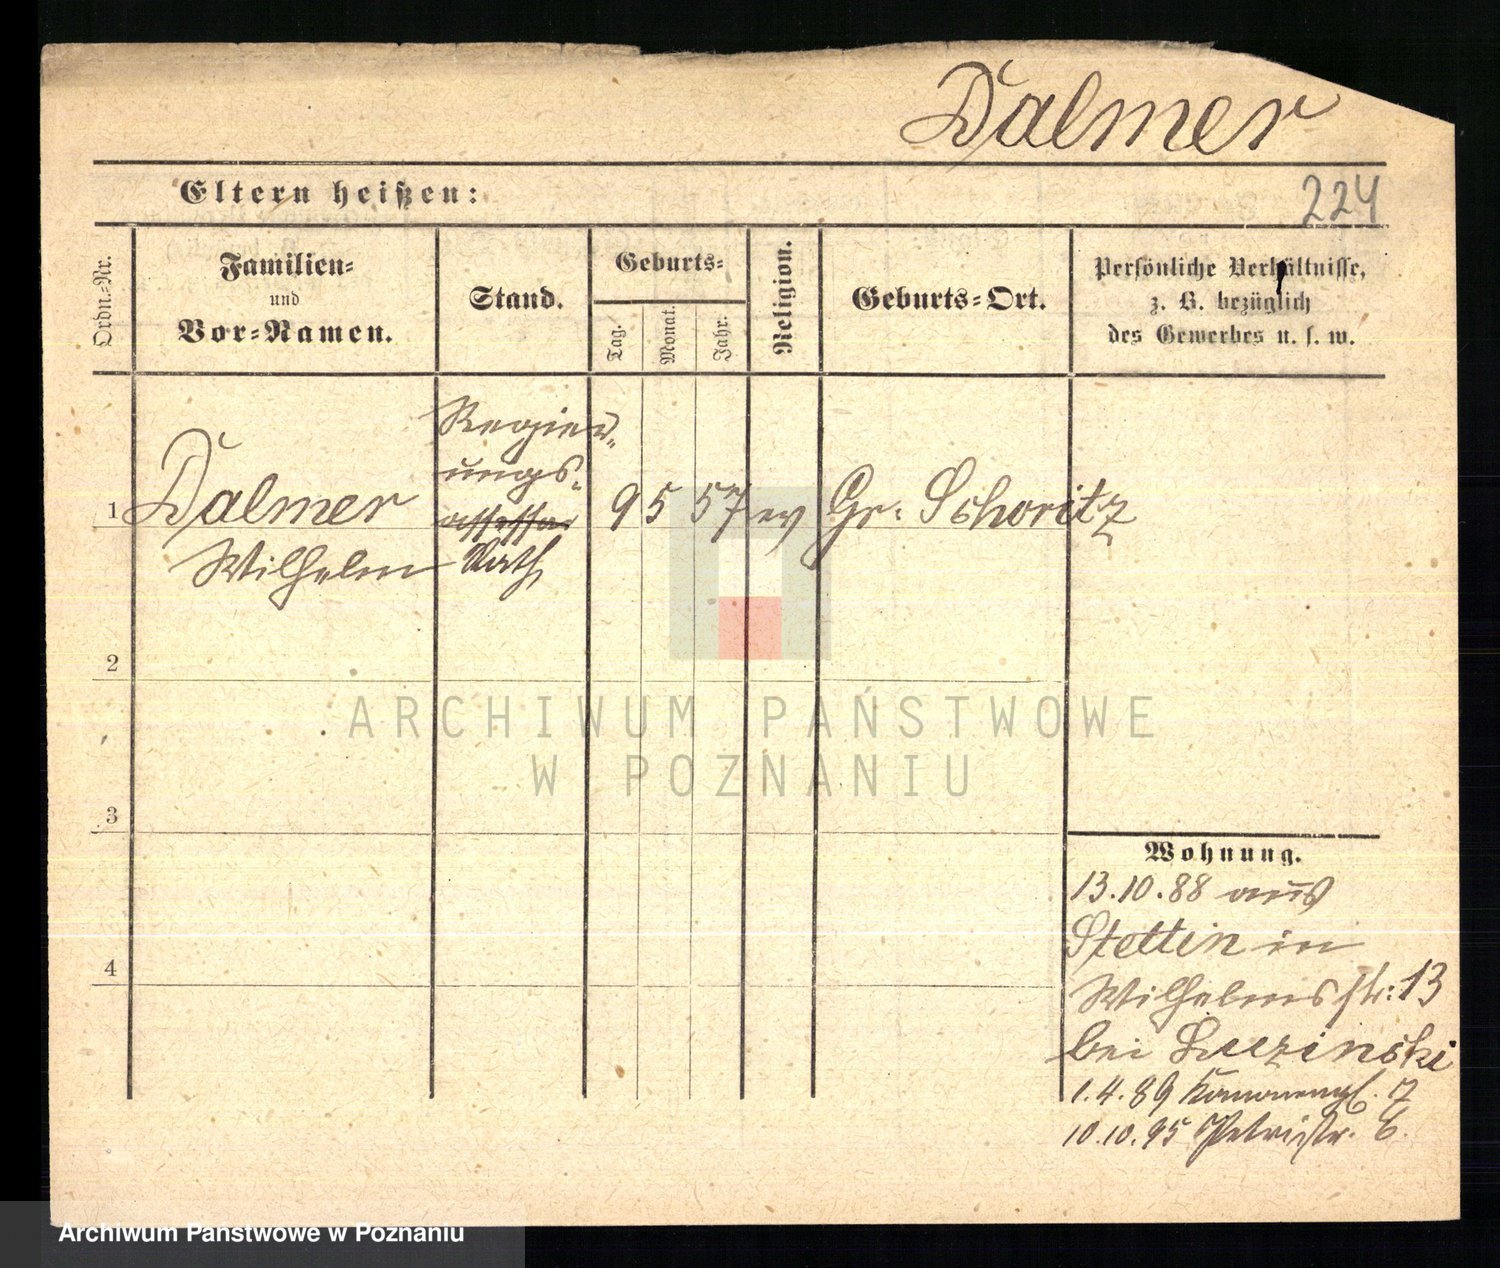 Dalmer
Eltern heißen:
224
Ordn.-Nr.
Familien-
und
Vor-Namen.
Stand.
Geburts-
Tag.
Monat.
Jahr.
Religion.
Geburts-Ort.
Persönliche Verhältnisse,
z. B. bezüglich
des Gewerbes u. s. w.
1
Dalmer
Wilhelm
Regier-
ungs-
assessor
Rath
9 5 57 ev Gr. Schoritz
2
3
4
Wohnung.
13.10.88 aus
Stettin in
Wilhelmsstr: 13
bei Luzinski
1.4.89 Kanonenpl. 7
10.10.95 Petristr. 6.
ARCHIWUM PAŃSTWOWE
W POZNANIU
Archiwum Państwowe w Poznaniu